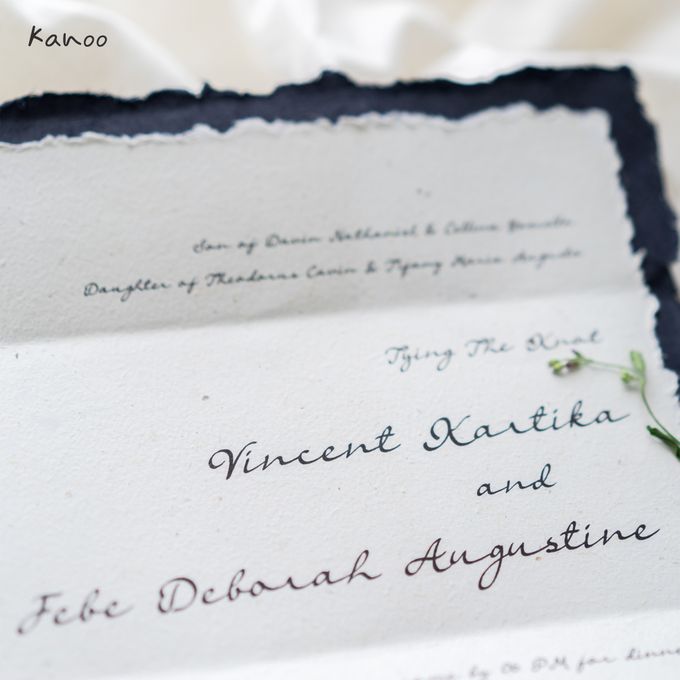 Kanoo
Son of Davin Nathaniel &
Daughter of Theodorus Cavin & Tyang Maria Augusta
Tying The Knot
Vincent Kartika
and
Febe Deborah Augustine
by 06 PM for dinne